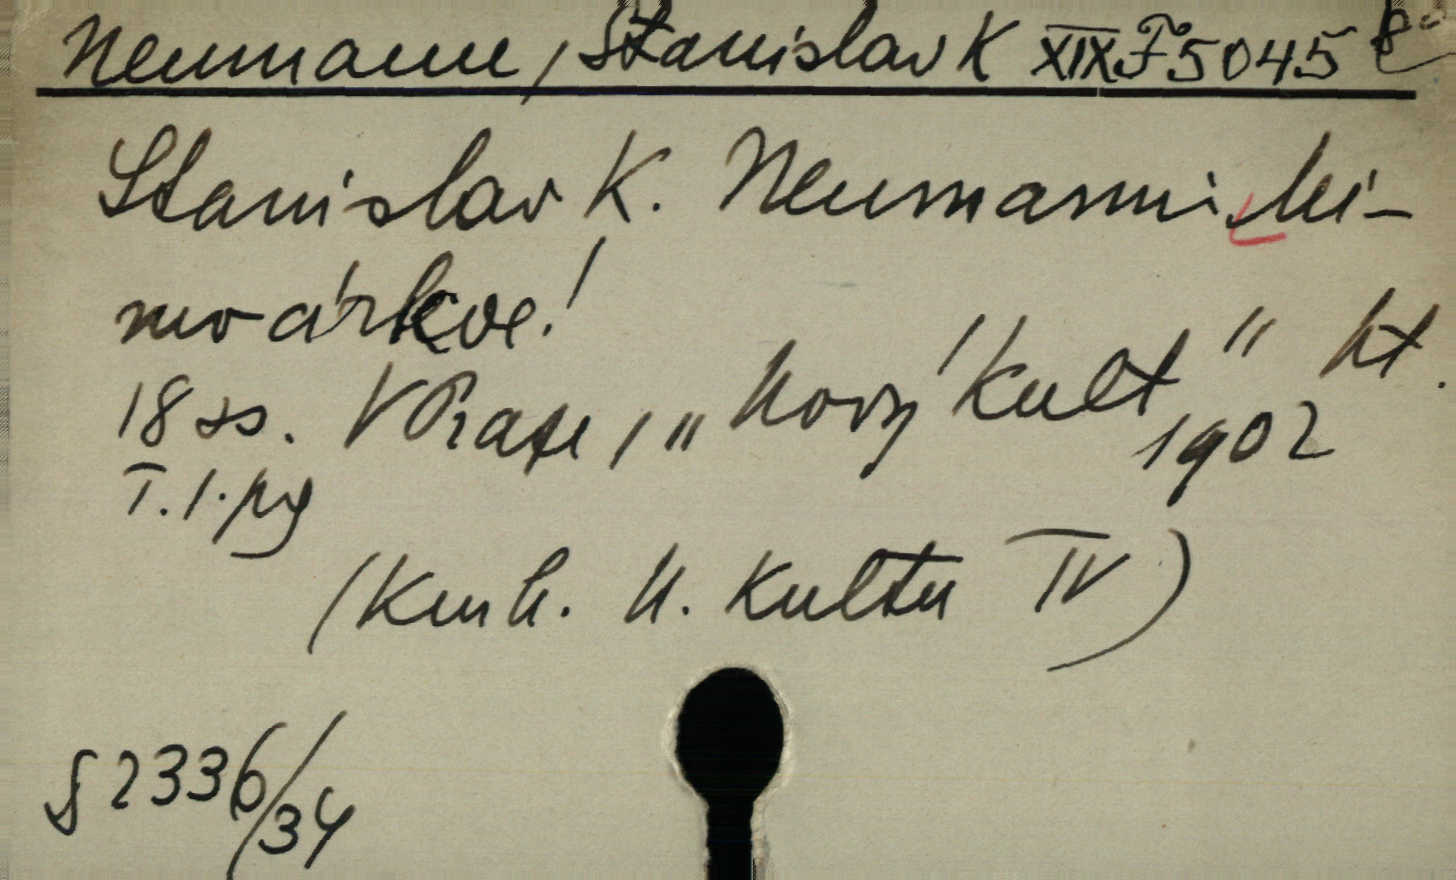 Neumann, Stanislav K XIX F 5045
Stanislav K. Neumann: Ni-
mvo árkve!
18 ss. V Praze, „Nový Kult" kt.
1902
T. I. pg
(Knih. N. Kultu IV)
§ 2336/34